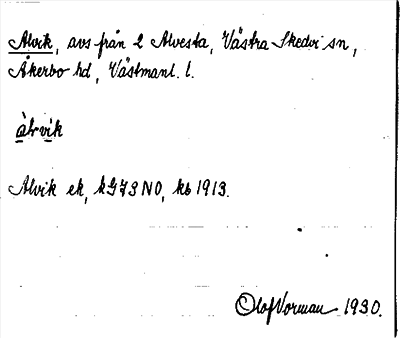 Alvik, avs från 2 Alvesta, Västra Skedvi sn,
Åkerbo hd, Västmanl. l.
àlvik
Alvik ek, kG73NO, kb 1913.
Olof Vorman 1930.